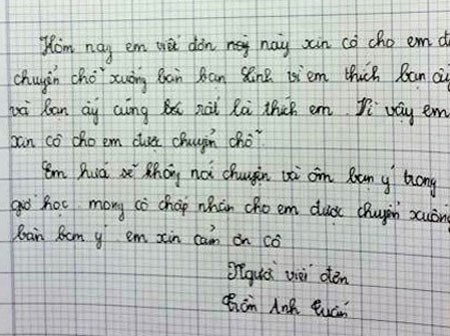 Hôm nay em viết đơn này xin cô cho em đ
chuyển chỗ xuống bàn bạn Linh vì em thích bạn ấy
và bạn ấy cũng rất là thích em. Vì vậy em
xin cô cho em được chuyển chỗ.
Em hứa sẽ không nói chuyện và ôm bạn ý trong
giờ học. mong cô chấp nhận cho em được chuyển xuống
bàn bạn ý em xin cảm ơn cô
Người viết đơn
Trần Anh